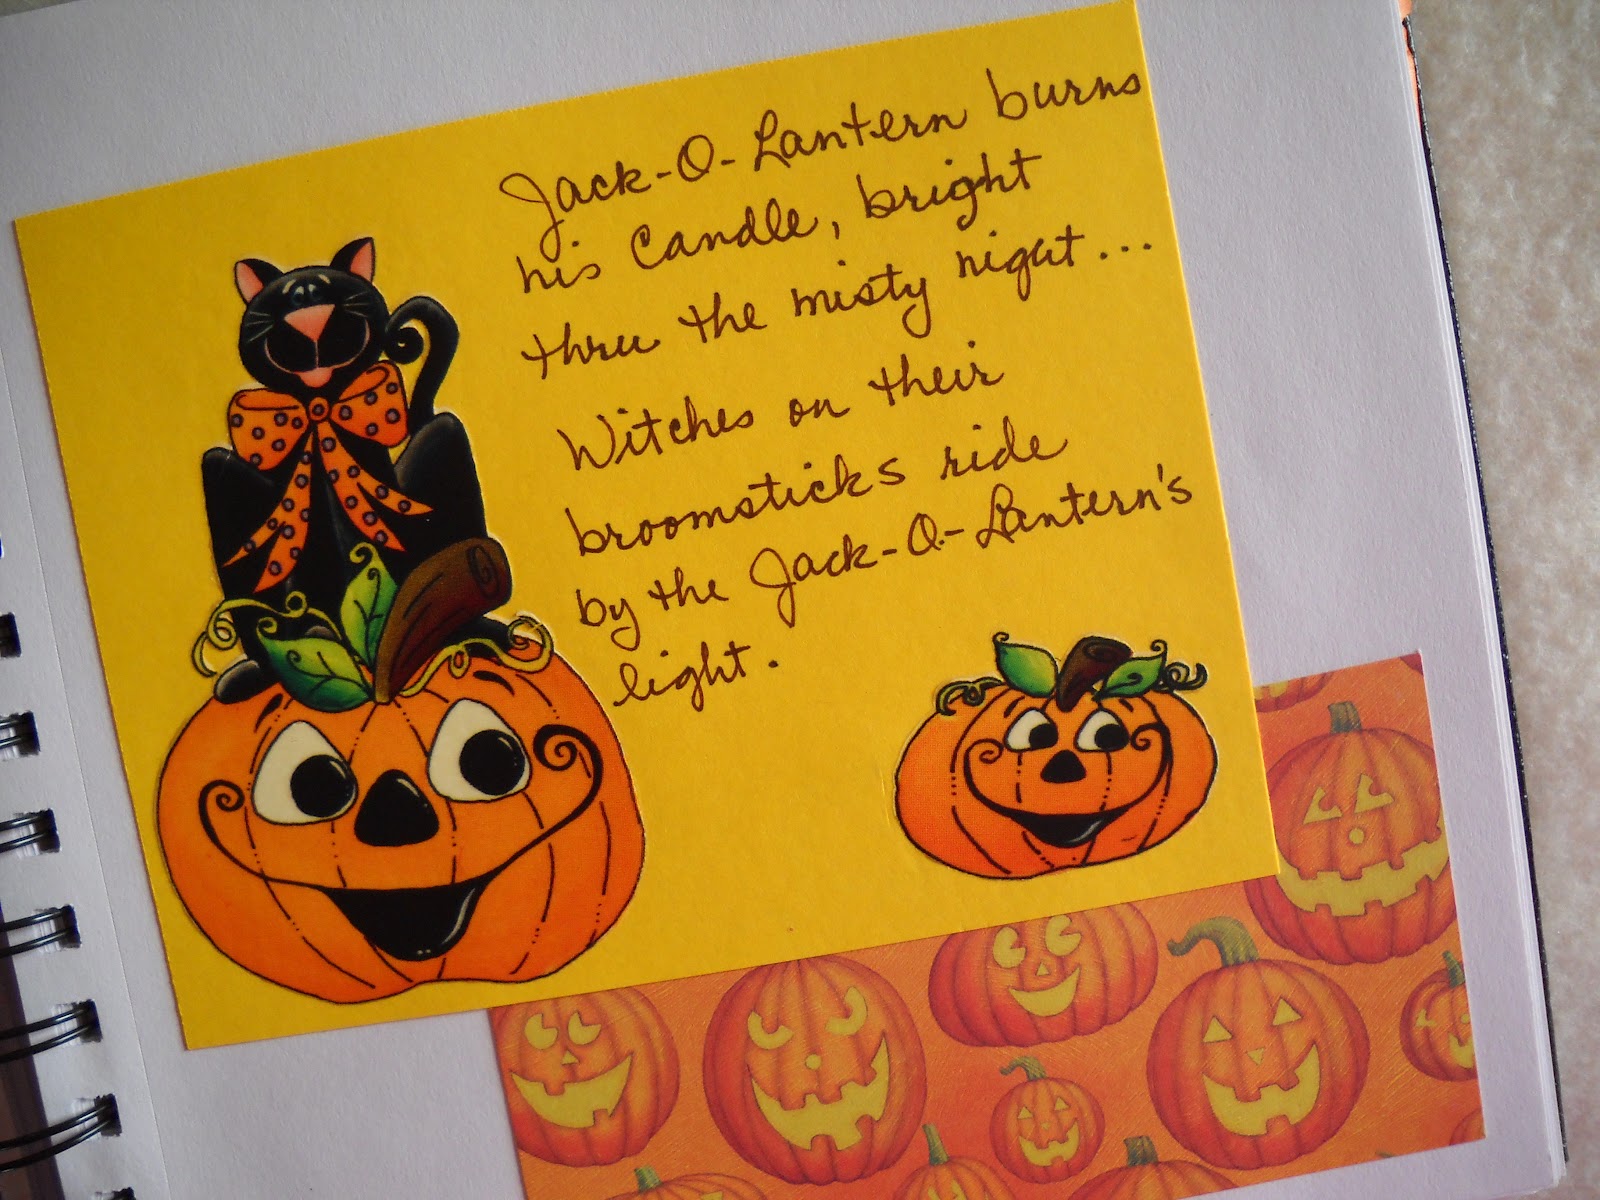 Jack-O-Lantern burns
his Candle, bright
thru the misty night...
Witches on their
broomsticks ride
by the Jack-O-Lantern's
light.